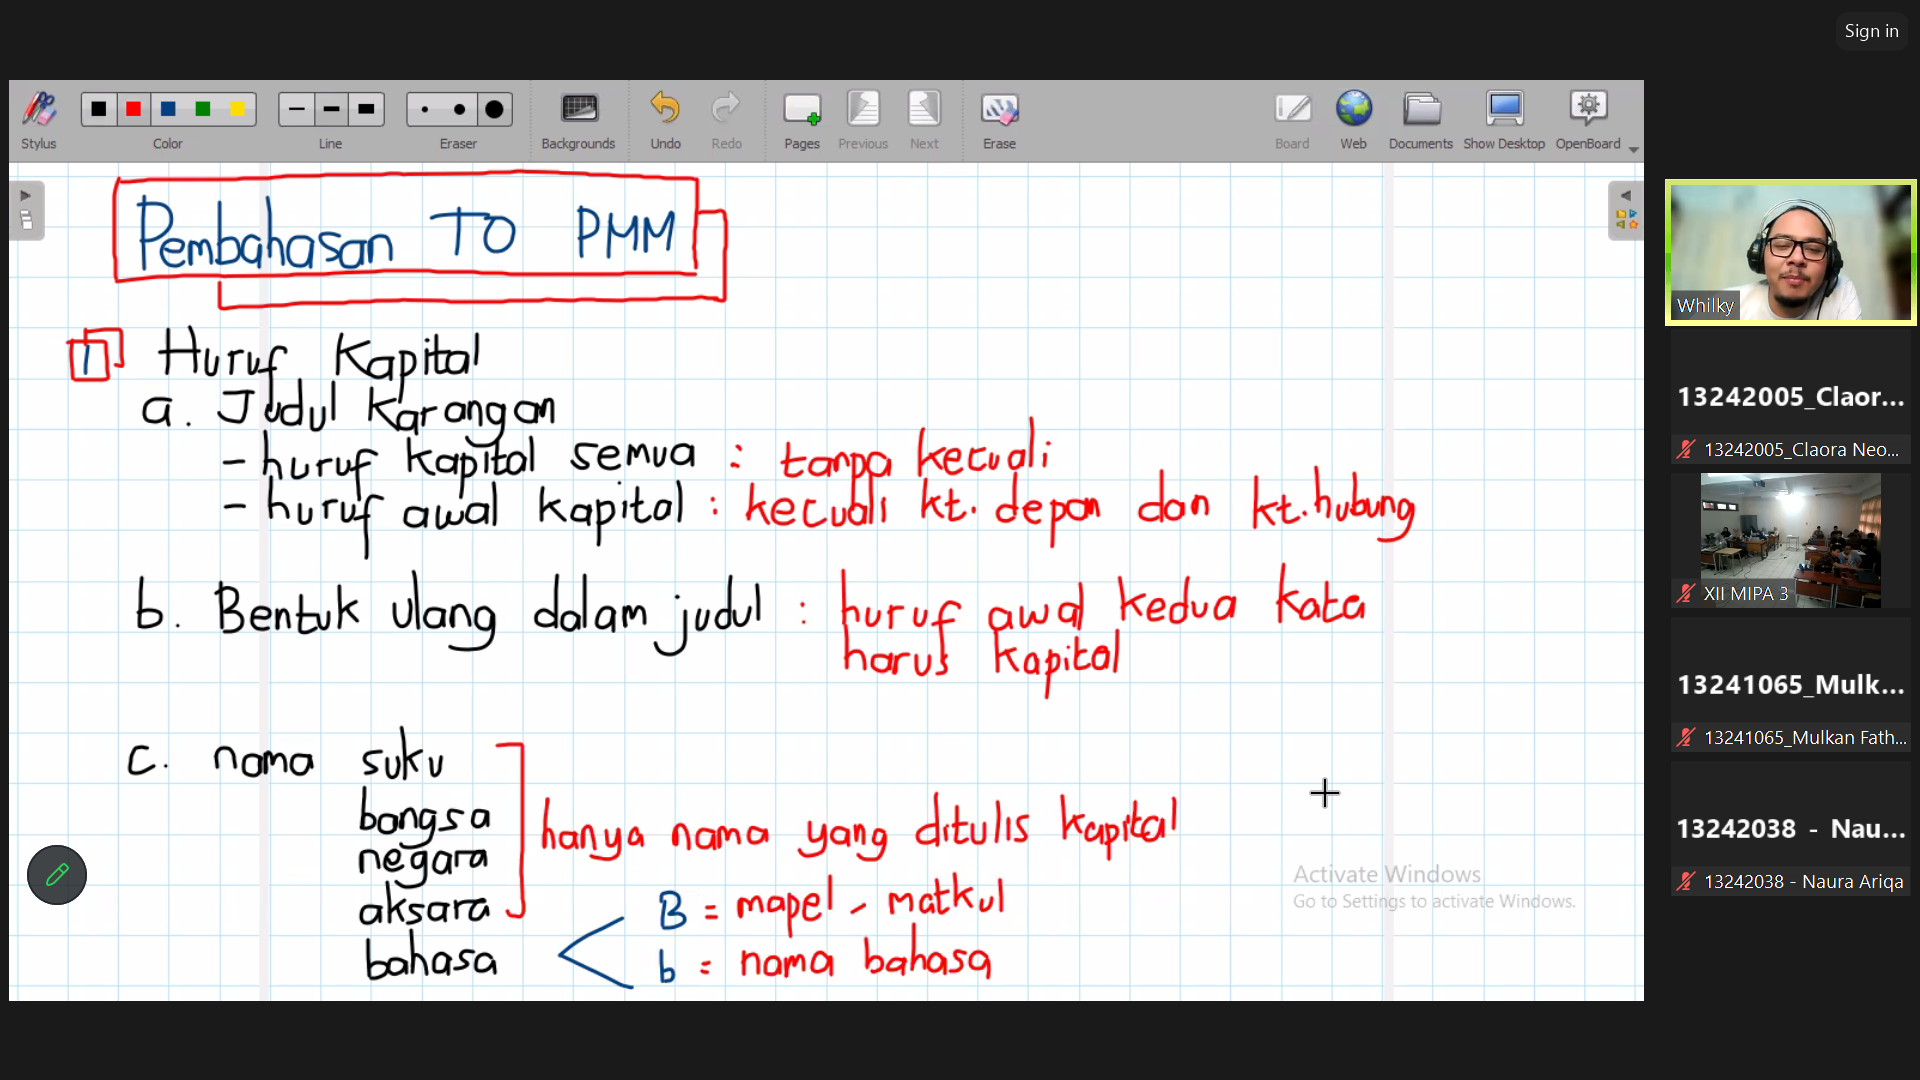 Sign in
Stylus
Color
Line
Eraser
Backgrounds
Undo
Redo
Pages
Previous
Next
Erase
Board
Web
Documents
Show Desktop
OpenBoard
Pembahasan TO PMM
1 Huruf Kapital
a. Judul Karangan
- huruf kapital semua : tanpa kecuali
- huruf awal kapital : kecuali kt. depan dan kt. hubung
b. Bentuk ulang dalam judul : huruf awal kedua kata
harus kapital
c. nama suku
bangsa
hanya nama yang ditulis kapital
negara
aksara
B = mapel - matkul
bahasa
b = nama bahasa
Activate Windows
Go to Settings to activate Windows.
Whilky
13242005_Claor...
13242005_Claora Neo...
XII MIPA 3
13241065_Mulk...
13241065_Mulkan Fath...
13242038 - Nau...
13242038 - Naura Ariqa